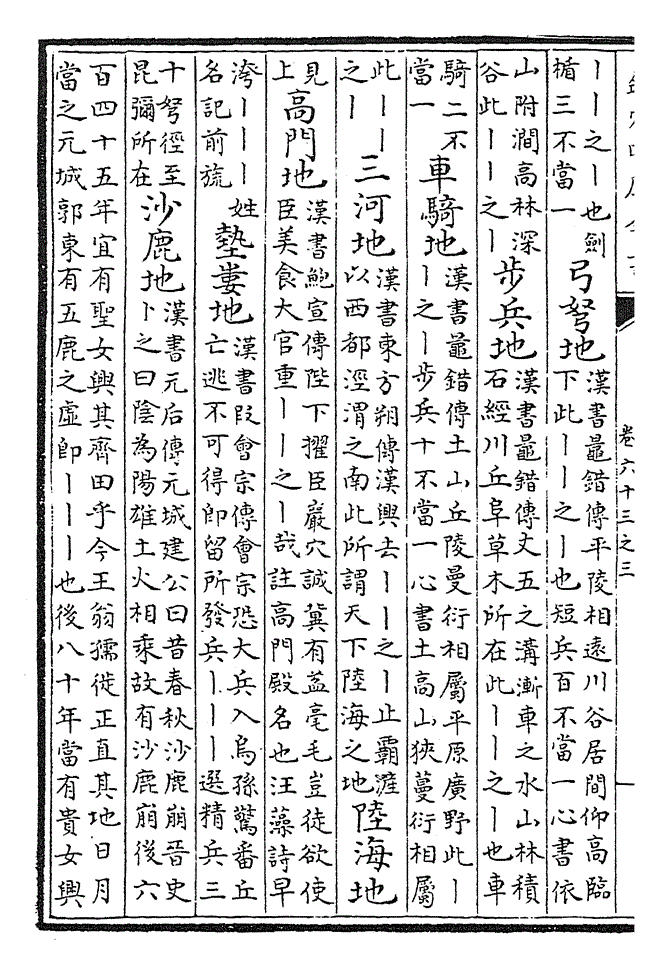 卷六十三之三
丨丨之丨也劍
楯三不當一
弓弩地
漢書鼂錯傳平陵相遠川谷居間仰高臨
下此丨丨之丨也短兵百不當一心書依
山附澗高林深
谷此丨丨之丨
步兵地
漢書鼂錯傳丈五之溝漸車之水山林積
石經川丘阜草木所在此丨丨之丨也車
騎二不
當一
車騎地
漢書鼂錯傳土山丘陵曼衍相屬平原廣野此丨
丨之丨步兵十不當一心書土高山狹蔓衍相屬
此丨丨
之丨
三河地
漢書東方朔傳漢興去丨丨之丨止霸滻
以西都涇渭之南此所謂天下陸海之地
陸海地
見
上
高門地
漢書鮑宣傳陛下擢臣巖穴誠冀有益毫毛豈徒欲使
臣美食大官重丨丨之丨哉註高門殿名也汪藻詩早
洿丨丨丨姓
名記前旒
墊婁地
漢書段會宗傳會宗恐大兵入烏孫驚番丘
亡逃不可得即留所發兵丨丨丨選精兵三
十弩徑至
昆彌所在
沙鹿地
漢書元后傳元城建公曰昔春秋沙鹿崩晉史
卜之曰陰為陽雄土火相乘故有沙鹿崩後六
百四十五年宜有聖女興其齊田乎今王翁孺徙正直其地日月
當之元城郭東有五鹿之虛卽丨丨丨也後八十年當有貴女興